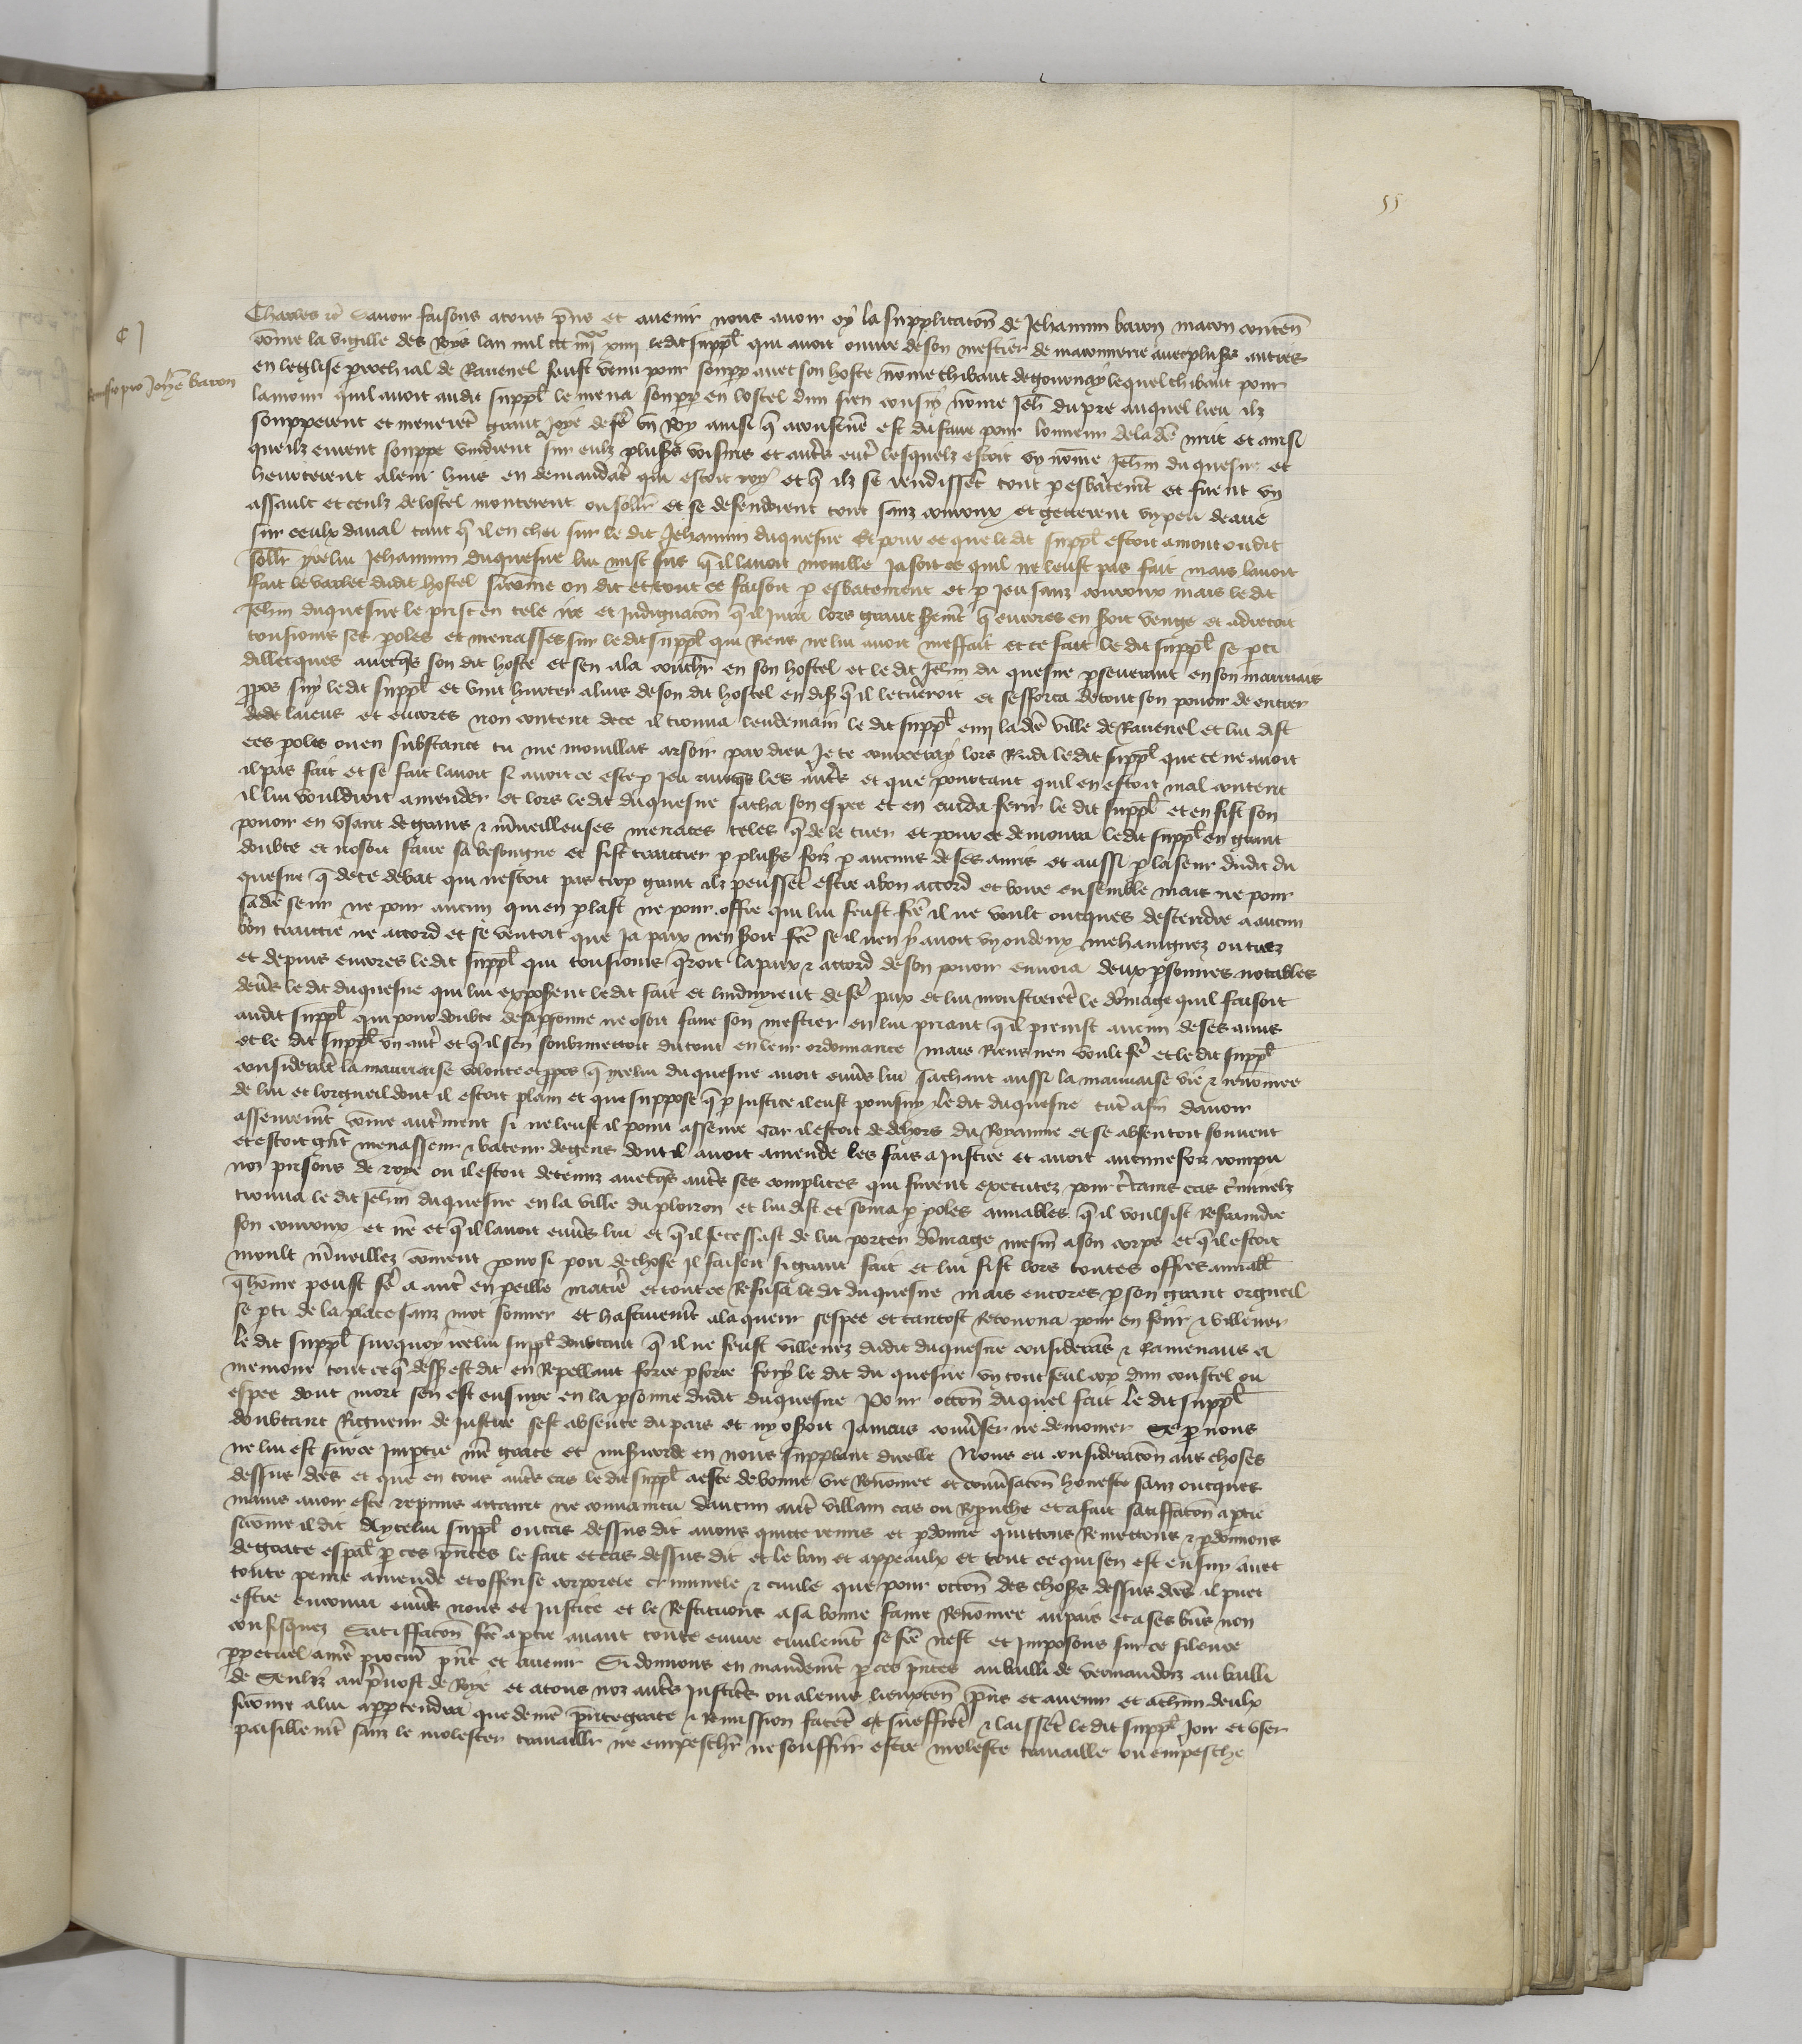 55
C I
Remissio pro Johẽ baron
Charles etc̃ Savoir faisons a tous p̃ns et avenir nous avoir oÿ la supplicacõn de Jehannin baron macon conten̄
cõme la vigille des Roys lan mil ccc iiiixx xiiii ledit suppl̃ qui avoit ouvre de son mestier de maconnerie avec plus̃s autres
en leglise p̃rochial de Ravenel feust venu pour soupp̃r avec son hoste nõme thibaut de gournay lequel thibaut pour
lamour quil avoit audit suppl̃ le mena soupp̃r en lostel dun sien cousin nõme Jeh̃ du pre auquel lieu ilz
soupperent et menerẽt grant joye de fẽ un Roy ainsi q̃ acoustumẽ est du faire pour lonneur de lad̃e nuit et ainsi
que ilz eurent souppe vindrent sur eulz plus̃s voisins et aut̃s ent̃ lesquelz estoit un nõme Jeh̃n du quesne et
heurterent a leur huis en demandãt qui estoit roy et q̃ ilz se rendissẽt tout p̃ esbatem̃t et firent un
assault et ceulz de lostel monterent ou solier et se defendirent tout sanz courroux et getterent un peu deaue
sur ceulx daval tant q̃ il en cheu sur le dit Jehannin duquesne Et pour ce que le dit suppl̃ estoit amont ou dit
solier ycelui Jehannin duquesne lui mist sus q̃ il lavoit moullie Ja soit ce quil ne leust pas fait mais lavoit
fait le varlet dudit hostel si cõme on dit et tout ce faisoit p̃ esbatement et p̃ Jeu sanz courroux mais le dit
Jeh̃n duquesne le prist en tele ire et Indignacõn q̃ il Jura lors grant serem̃t q̃ encores en seroit venge et adrecoit
tousjours ses p̃oles et menasses sur le dit suppl̃ qui Riens ne lui avoit meffait et ce fait le dit suppl̃ se p̃ti
dillecques avecq̃s son dit hoste et sen ala couch̃r en son hostel et le dit Jeh̃n du quesne p̃severant en son mauvais
p̃pos suÿ le dit suppl̃ et vint hurter a luis de son dit hostel en dis̃ q̃ il le tueroit et sefforca de tout son povoir de entrer
dede laiens et encores non content de ce il trouva lendemain le dit suppl̃ emi lad̃e ville de Ravenel et lui dist
ces p̃oles ou en substance tu me moullas arsoir par dieu Je te courceray lors Rn̄di le dit suppl̃ que ce ne avoit
il pas fait et se fait lavoit si avoit ce este p̃ Jeu avecq̃s les aut̃s et que pourtant quil en estoit mal content
il lui vouldroit amender et lors le dit duquesne sacha son espee et en cuida ferir le dit suppl̃ et en fist son
povoir en usant de grans & m̃veilleuses menaces teles q̃ de le tuer et pour ce demoura ledit suppl̃ en grant
doubte et nosoit faire sa besoingne et fist traictier p̃ plus̃s foiz p̃ aucuns de ses amis et aussi p̃ la seur dudit du
quesne q̃ de ce debat qui nestoit pas trop grant ilz peussẽt estre a bon accord et boire ensemble mais ne pour
sad̃e seur ne pour aucun qui en p̃last ne pour offre qui lui feust fc̃e il ne voult oncques descendre a aucun
bon traictie ne accord et se ventoit que Ja paix nen seroit fc̃e se il nen y avoit un ou deux mehaingnez ou tuez
et depuis encores le dit suppl̃ qui tousjours q̃roit la paix & accord de son povoir envoia deux p̃sonnes notables
deṽs le dit duquesne qui lui exposerent le dit fait et linduyrent de fẽ paix et lui monstrerẽt le dõmage quil faisoit
audit suppl̃ qui pour doubte de sa p̃sonne ne osoit faire son mestier en lui priant q̃ il preinst aucun de ses amis
et le dit suppl̃ un aut̃ et q̃ il sen soubzmettroit du tout en leur ordonnance mais Riens nen voult fẽ et le dit suppl̃
considerãt la mauvaise volonte et p̃pos q̃ ycelui duquesne avoit enṽs lui sachant aussi la mauvaise vie & renõmee
de lui et lorgueil dont il estoit plain et que suppose q̃ p̃ Justice il eust poursuy le dit duquesne tãt afin davoir
asseurem̃t cõme aut̃ment si ne leust il point asseure Car il estoit de dehors du Royaume et se absentoit souvent
et estoit gñt menasseur & bateur de gens dont il avoit amende les fais a Justice et avoit aucunesfoiz rompu
noz prisons de roye ou il estoit detenuz avecq̃s aut̃s ses complices qui furent executez pour c̃tains cas c̃minelz
trouva le dit Jeh̃n duquesne en la ville du ploiron et lui dist et sõma p̃ p̃oles amiables q̃ il voulsist Refraindre
son courroux et ire et q̃ il lavoit enṽs lui et q̃ il se cessast de lui porter dõmage mesm̃ a son corps et q̃ il estoit
moult m̃veillez cõment pour si pou de chose il faisoit si grant fait et lui fist lors toutes offres amiabl̃
q̃ hõme peust fẽ a aut̃ en p̃eille matiẽ et tout ce Refusa le dit duquesne mais encores p̃ son grant orgueil
se p̃ti de la place sanz mot sonner et hastivem̃t ala querir sespee et tantost Retourna pour en ferir & villener
le dit suppl̃ surquoy icelui suppl̃ doubtant q̃ il ne feust villenez dudit duquesne considerãs & ramenans a
memoire tout ce q̃ dess̃ est dit en Repellant force p̃ force fery le dit du quesne un tout seul cop dun coustel ou
espee dont mort sen est ensuye en la p̃sonne dudit duquesne Pour occõn duquel fait le dit suppl̃
doubtant Rigueur de Justice sest absente du pais et ny oseroit Jamais conṽser ne demourer Se p̃ nous
ne lui est sur ce Imp̃tie nr̃e grace et mis̃icorde en nous suppliant dicelle Nous eu consideracõn aus choses
dessus d̃ces et que en tous aut̃s cas le dit suppl̃ a este de bonne vie Renõmee et conṽsacõn honeste sanz oncques
mais avoir este repruis attaint ne convaincu daucun aut̃ villain cas ou Reprouche et a fait satiffacõn a p̃tie
si cõme il dit A ycelui suppl̃ ou cas dessus dit avons quitte remis et p̃donne quittons Remettons & p̃donnons
de grace esp̃al p̃ ces p̃ntes le fait et cas dessus dit et le ban et appeaulx et tout ce qui sen est ensuy avec
toute peine amende et offense corporele criminele & civile que pour occõn des choses dessus d̃ces il puet
estre encouru enṽs nous et Justice et le Restituons a sa bonne fame Renõmee au pais et a ses biẽs non
confisquez Satiffacõn fc̃e a p̃tie avant toute euvre civilem̃t se fc̃e nest et Imposons sur ce silence
p̃petuel a nr̃e procur̃ p̃nt et avenir Si donnons en mandem̃t p̃ ces p̃ntes au bailli de vermandois au bailli
de Senliz au p̃vost de Roye et a tous noz aut̃s Justic̃s ou a leurs lieuxten̄ p̃ns et avenir et a ch̃un deulx
si cõme a lui app̃tendra que de nr̃e p̃nte grace & remission facẽt et sueffrẽt & laissẽt le dit suppl̃ Joir et user
paisiblem̃t sanz le molester travaill̃r ne empesch̃r ne souffrir estre moleste travaille ou empesche